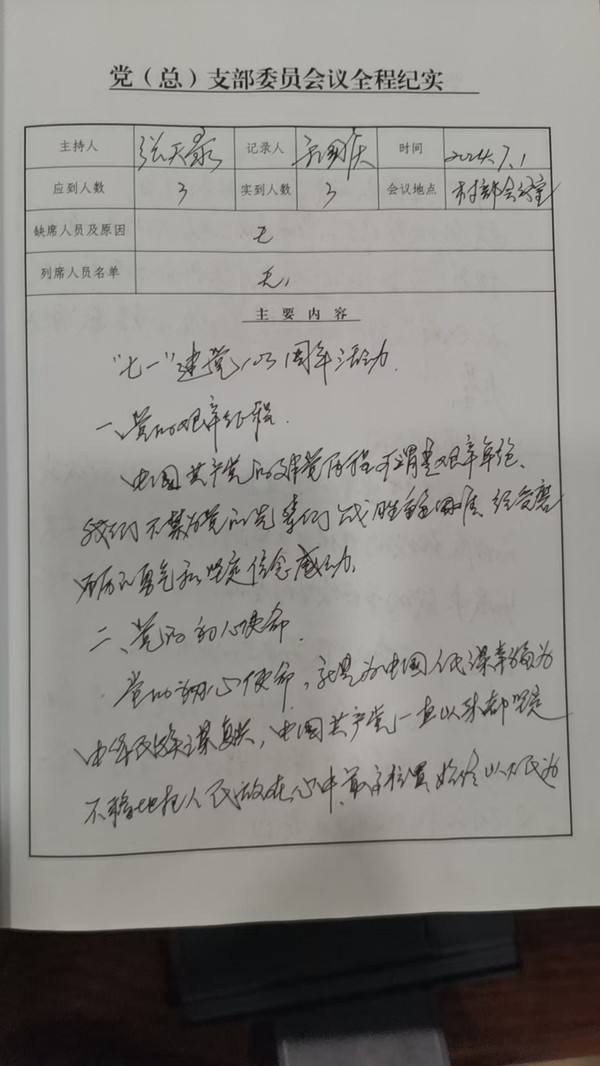 党（总）支部委员会议全程纪实
主持人 张天 记录人 时间 2024.7.1
应到人数 3 实到人数 3 会议地点 村部会议室
缺席人员及原因 无
列席人员名单 无
主要内容
“七一”建党103周年活动.
一、党的艰辛征程.
中国共产党的建党历程可谓是艰辛卓绝、
我们不禁为党的先辈们战胜重重困难、经受磨
砺的勇气和坚定信念感动.
二、党的初心使命.
党的初心使命，就是为中国人民谋幸福为
中华民族谋复兴，中国共产党一直以来都坚定
不移地把人民放在心中最高位置，始终以人民为